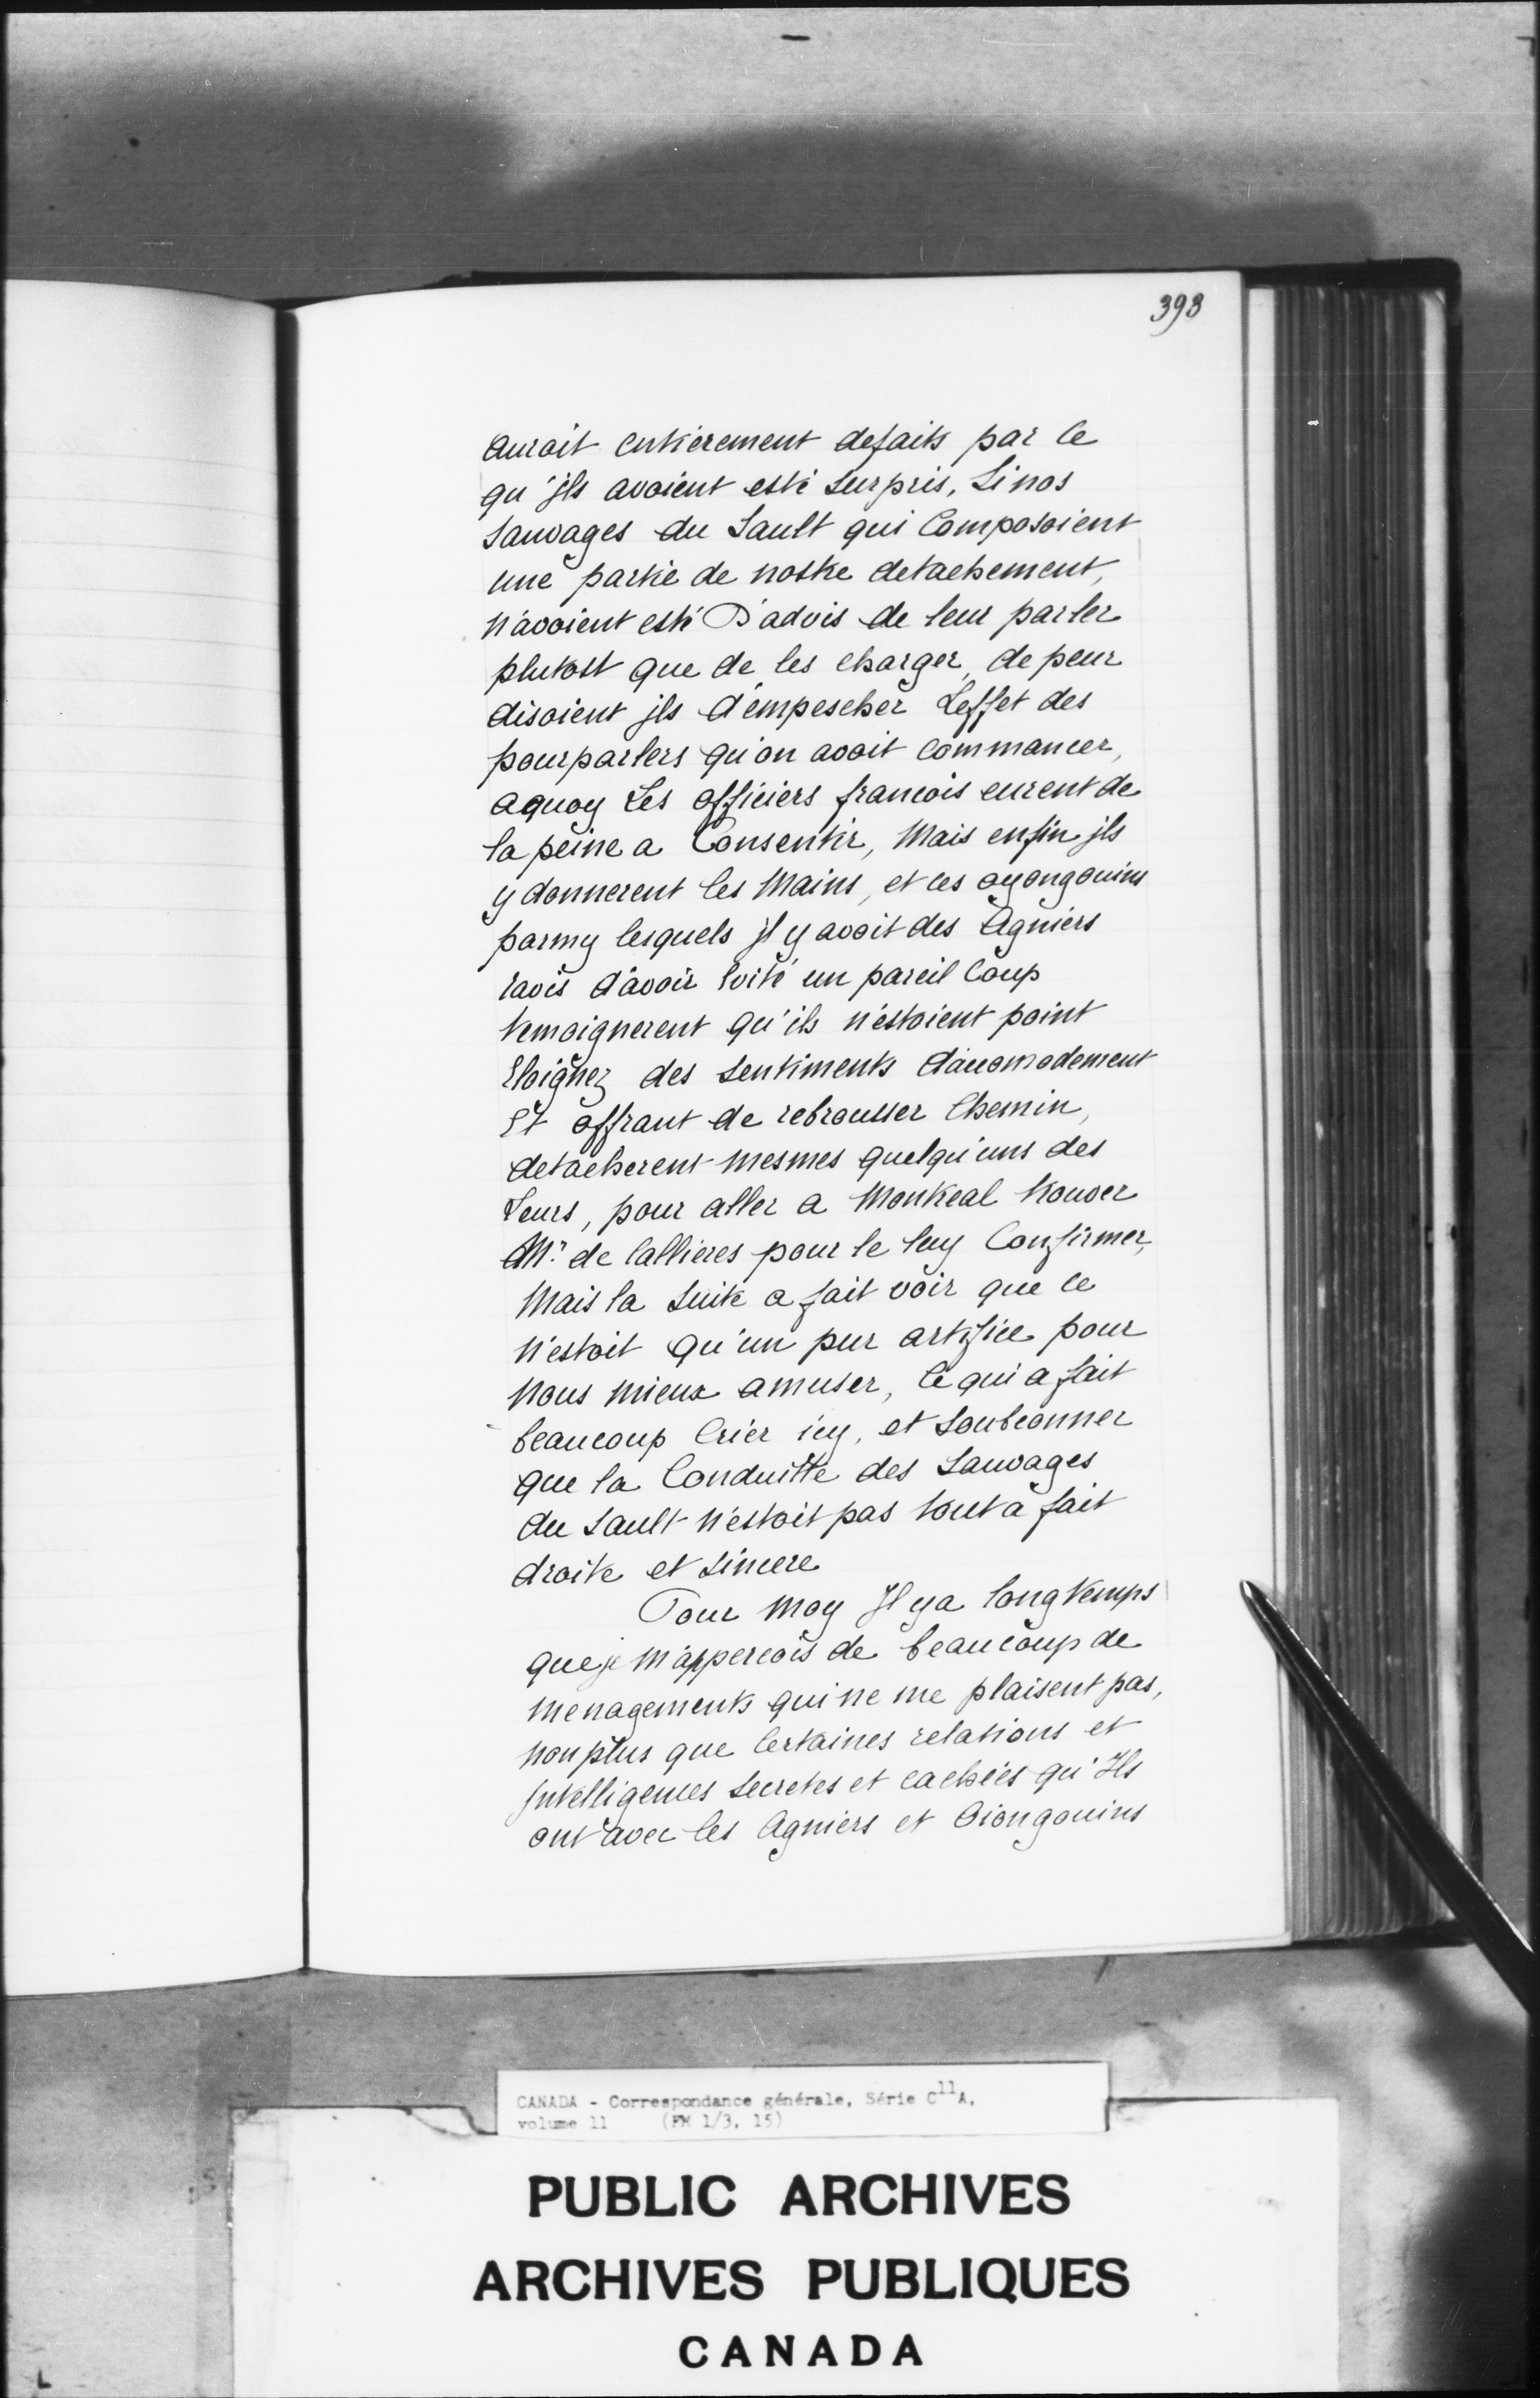 393
auroit entierement defaits par ce
qu'jls avoient esté surpris, Si nos
sauvages du Sault qui Composoient
une partie de nostre detachement,
n'avoient esté D'advis de leur parler
plutost que de les charger, de peur
disoient jls d'empescher Leffet des
pourparlers qu'on avoit commancer,
aquoy Les officiers francois eurent de
la peine a Consentir, Mais enfin jls
y donnerent les Mains, et ces oyongouins
parmy lesquels jl y avoit des Agniers
ravis d'avoir evité un pareil Coup
temoignerent qu'ils n'estoient point
Eloignez des sentiments d'accomodement
Et offrant de rebrousser Chemin,
detacherent mesmes quelqu'uns des
Leurs, pour aller a Montreal trouver
Mr. de Callieres pour le luy Confirmer,
Mais la suite a fait voir que ce
n'estoit qu'un pur artifice pour
Nous mieux amuser, Ce qui a fait
beaucoup Crier icy, et soubconner
que la Conduitte des Sauvages
du Sault n'estoit pas tout a fait
droite et sincere
Pour Moy Jl y a longtemps
que je m'appercois de beaucoup de
menagements qui ne me plaisent pas,
non plus que Certaines relations et
Intelligences secretes et cachées qu'Ils
ont avec les Agniers et Oiongouins
CANADA - Correspondance générale, Série C11A,
volume 11 (FM 1/3, 15)
PUBLIC ARCHIVES
ARCHIVES PUBLIQUES
CANADA